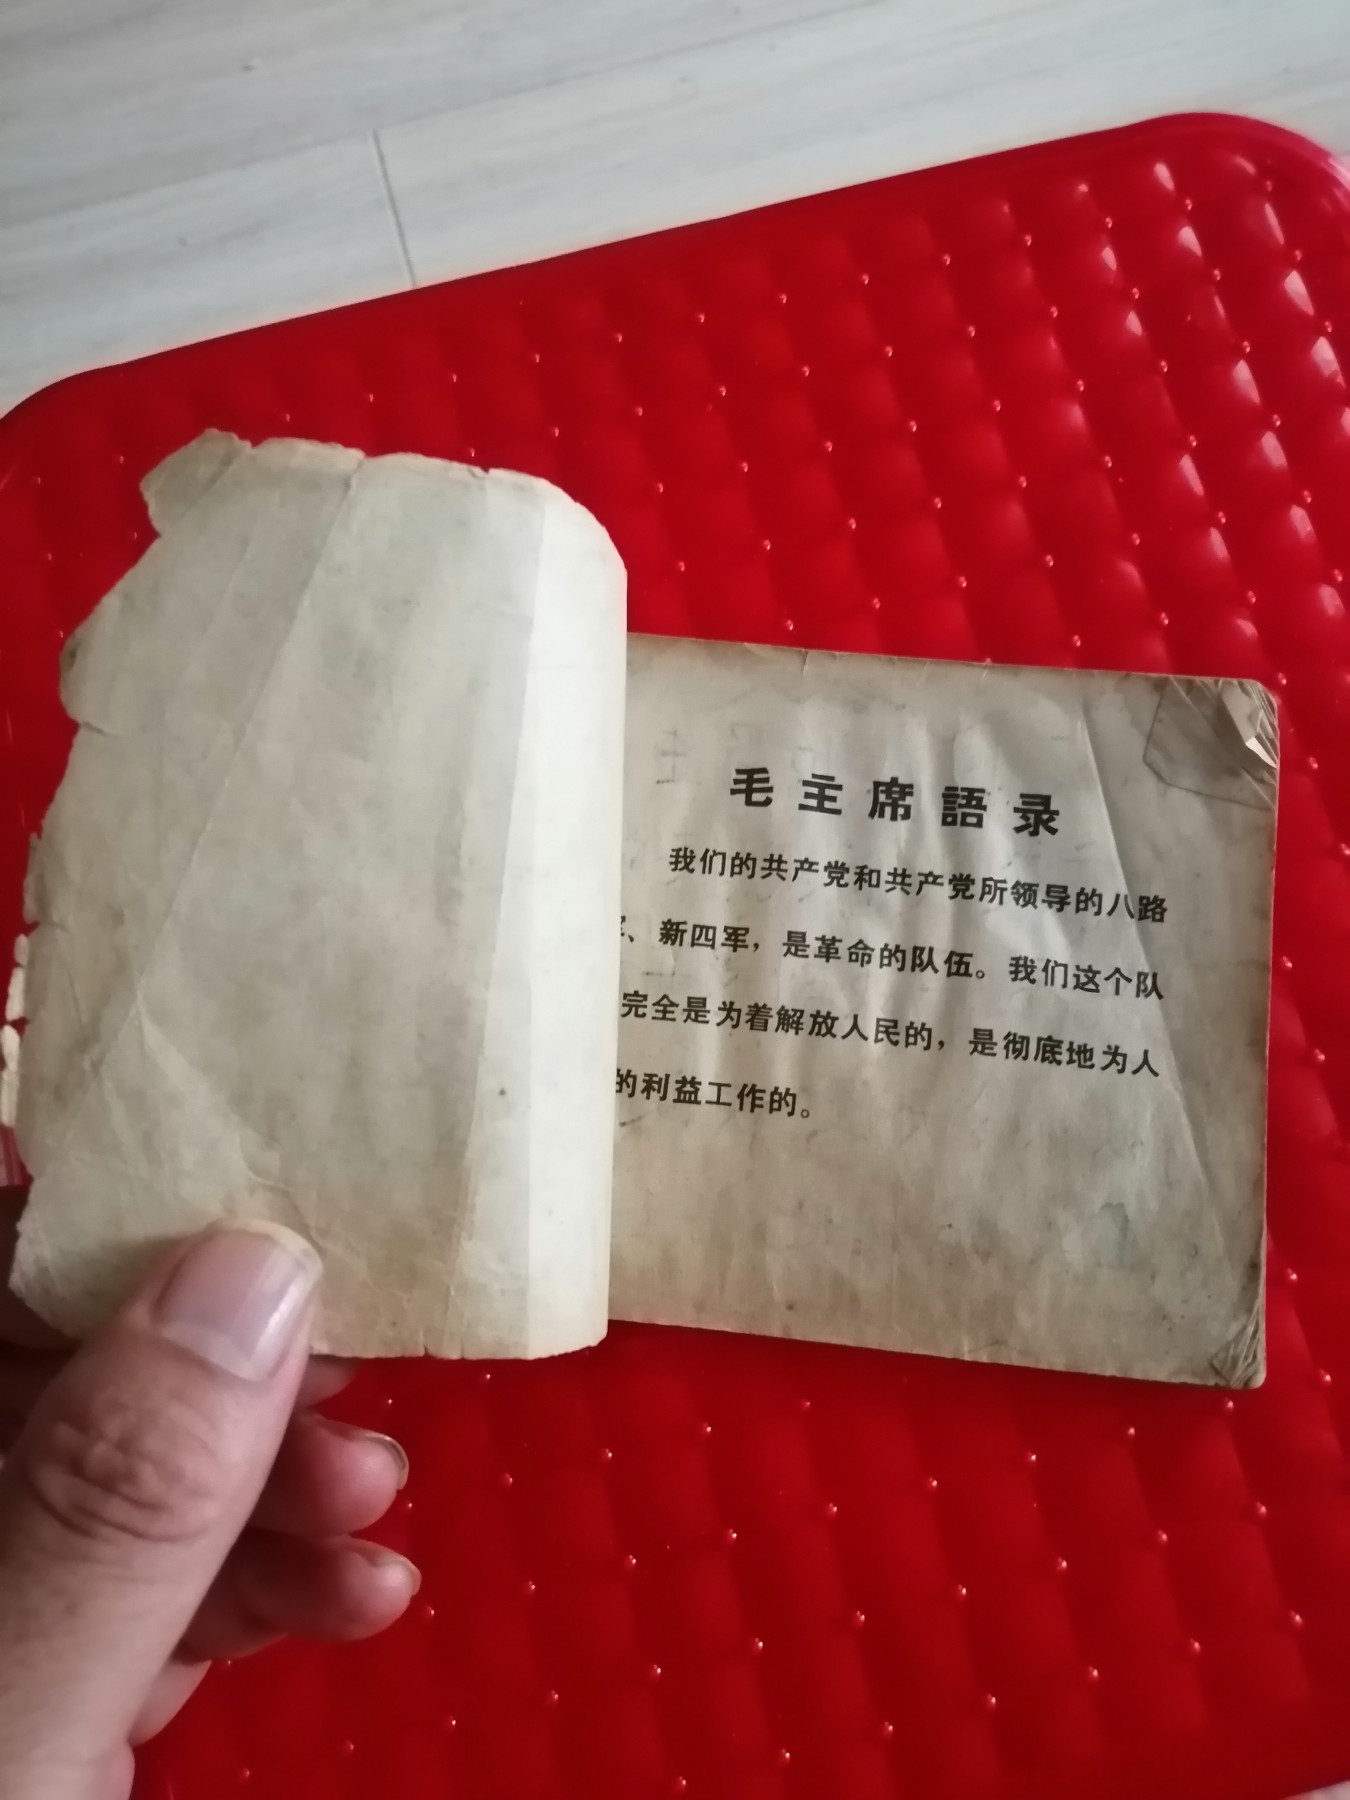 毛主席語录
我们的共产党和共产党所领导的八路
、新四军，是革命的队伍。我们这个队
完全是为着解放人民的，是彻底地为人
的利益工作的。